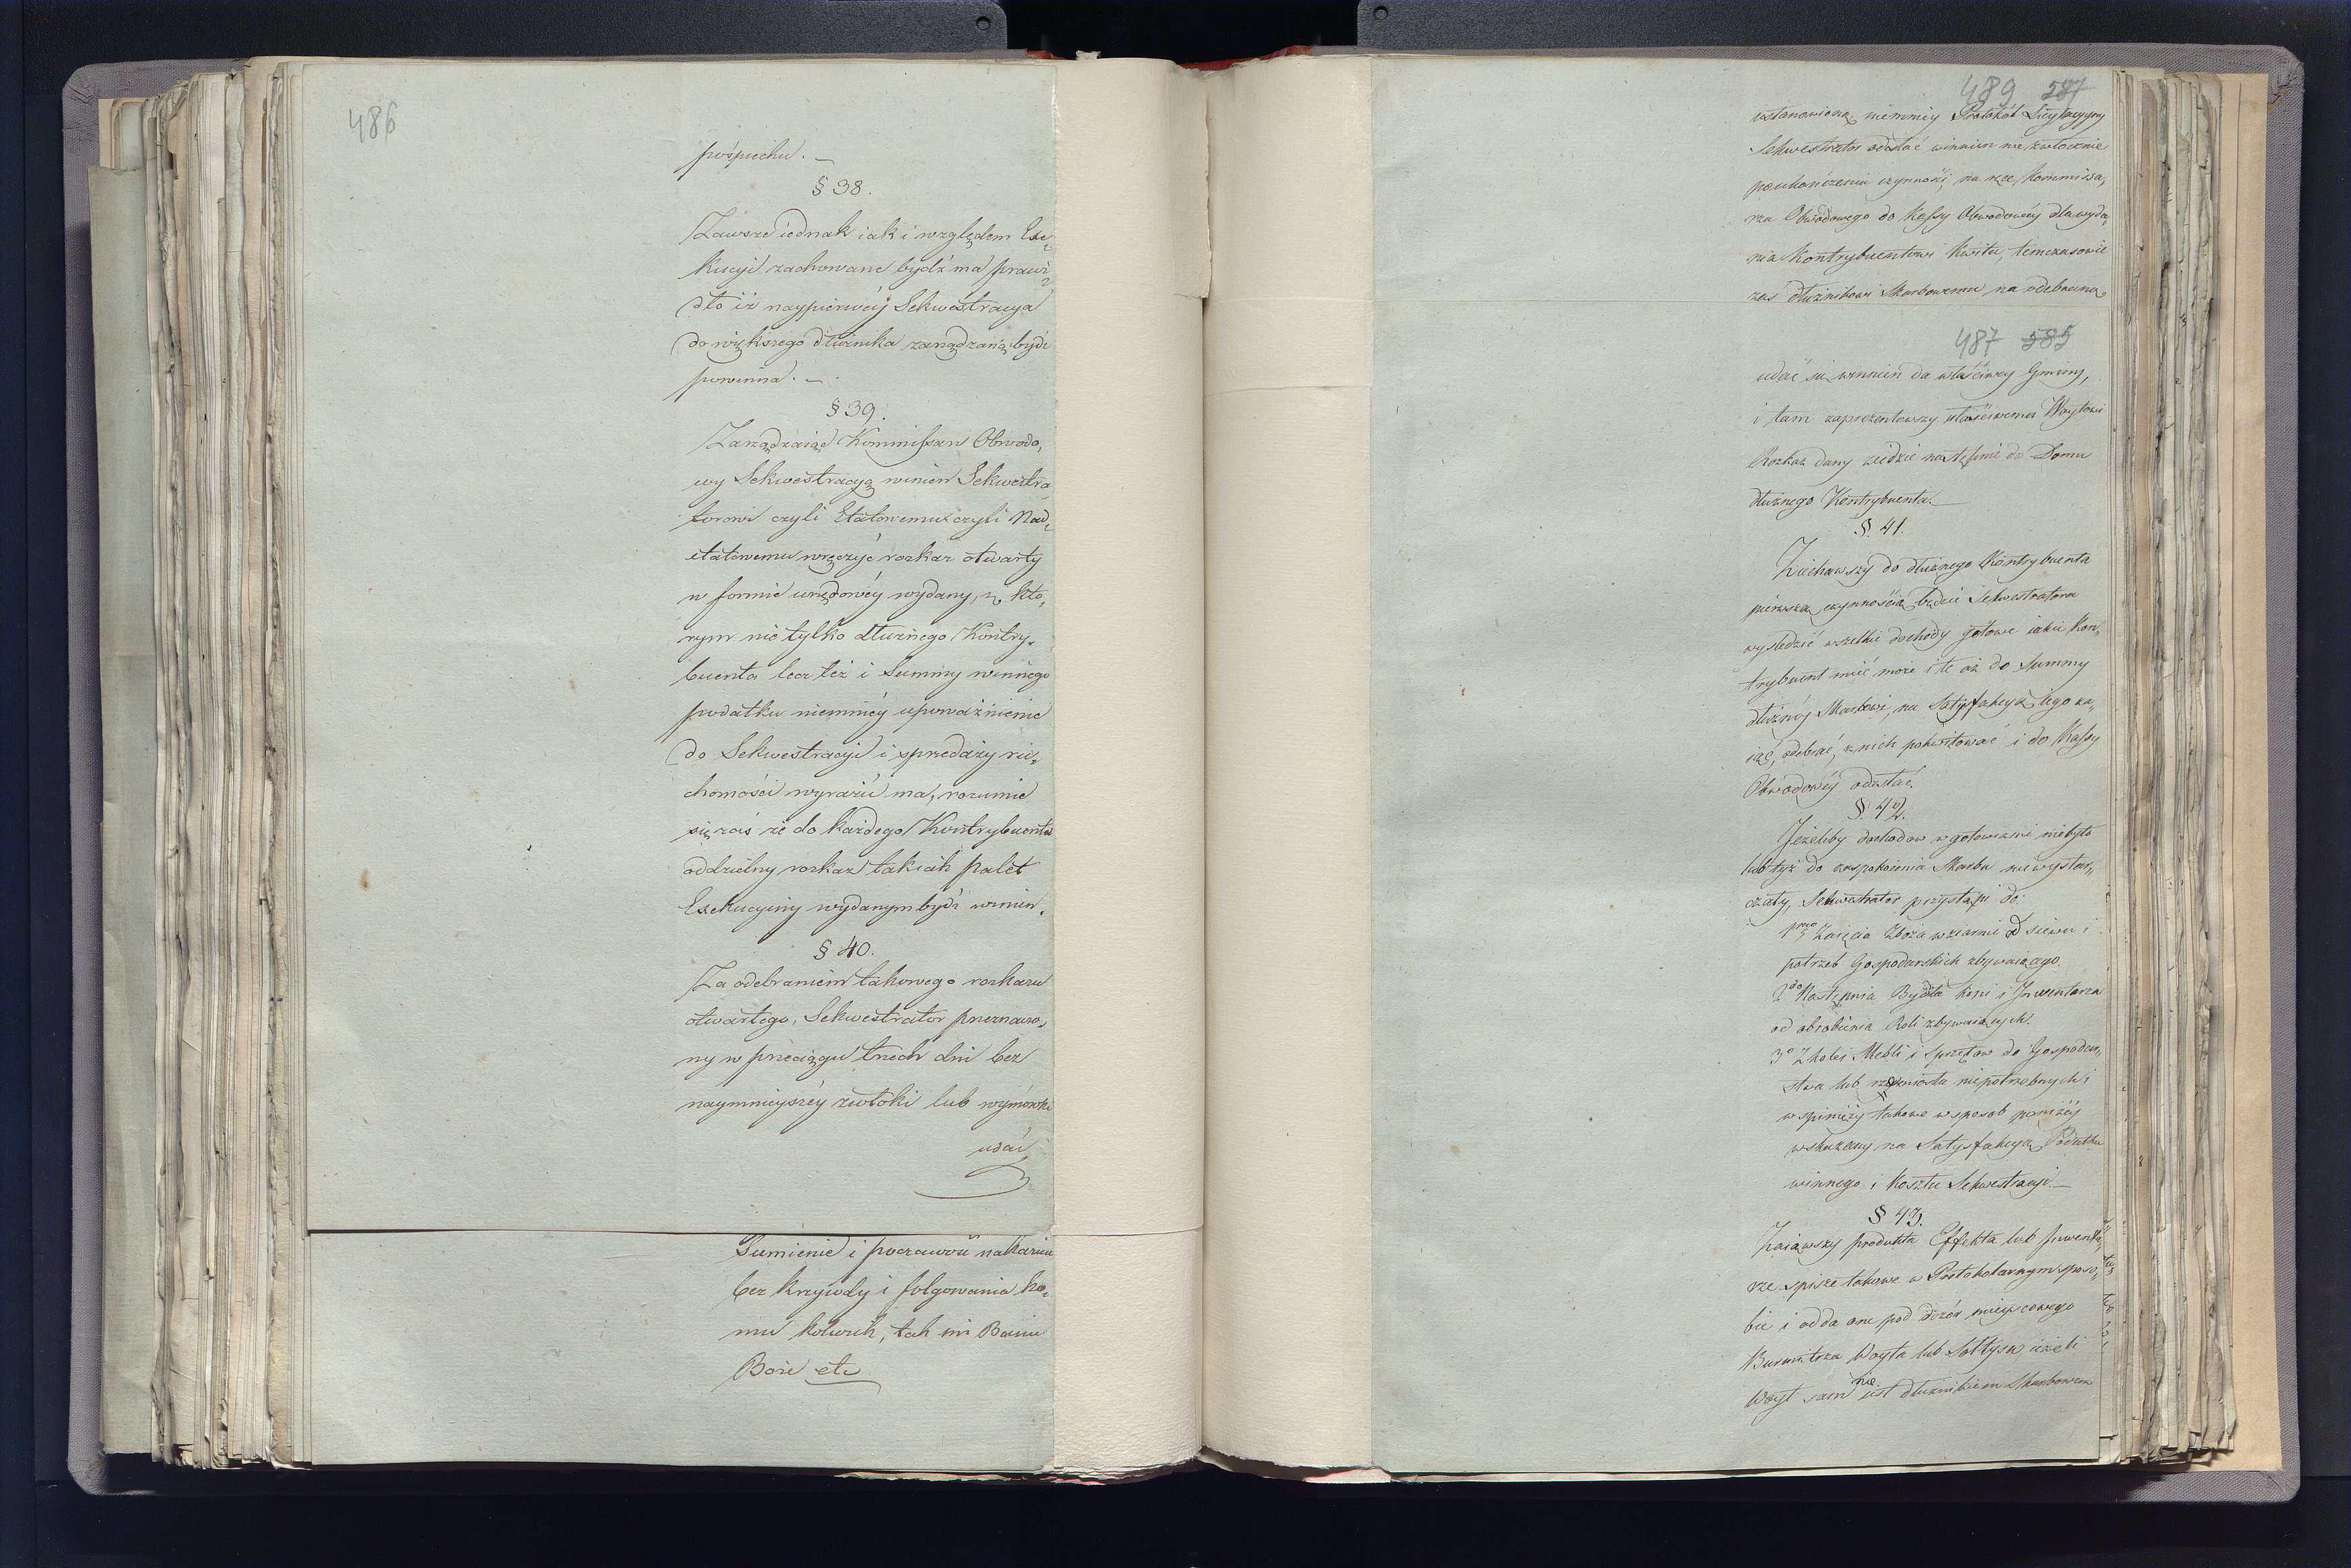 486
pośpiechu. —
§ 38.
Zawsze iednak iak i względem Exe„
kucyi zachowane bydź ma prawi„
dło iż naypierwéy Sekwestracya
do większego dłużnika zarządzaną bydź
powinna. —
§ 39.
Zarządzaiąc Kommissarz Obwodo„
wy Sekwestracyą winien Sekwestra„
torowi czyli Etatowemu czyli Nad„
etatowemu wręczyć rozkaz otwarty
w formie urzędowéy wydany, w któ„
rym nie tylko dłużnego Kontry„
buenta lecz też i Summy winnego
podatku niemniéy upoważnienie
do Sekwestracyi i sprzedaży ru„
chomości wyrazić ma, rozumie
się zaś że do każdego Kontrybuenta
oddzielny rozkaz tak iak palet
Exekucyiny wydanym bydź winien.
§ 40.
Za odebraniem takowego rozkazu
otwartego, Sekwestrator przeznaczo„
ny w przeciągu trzech dni bez
naymnieyszéy zwłoki lub wymówki
udać
Sumienie i poczciwość nakazuie
bez krzywdy i folgowania ko„
mu kolwiek, tak mi Panie
Boże etc
489 587
ustanowioną niemniey Protokół Licytacyyny
Sekwestrator odesłać winnien nie zwłocznie
po ukończeniu czynności, na ręce Kommissa„
rza Obwodowego do Kassy Obwodowéy dla wyda„
nia Kontrybuentowi Kwitu, temczasowie
zaś dłużnikowi Skarbowemu na odebraną
487 585
udać się winnien do właściwey Gminy,
i tam zaprezentowszy właściwemu Woytowi
Rozkaz dany ziedzie następnie do Domu
dłużnego Kontrybuenta. —
§. 41.
Ziechawszy do dłużnego Kontrybuenta
pierwszą czynnością będzie Sekwestratora
wyśledzić wszelkie dochody gotowe iakie Kon„
trybuent mieć może i te aż do Summy
dłużnéj Skarbowi, na Satysfakcyą tego za„
iąć, odebrać, z nich pokwitować i do Kassy
Obwodowéy odesłać.
§. 42.
Jeżeliby dochodow w gotowiznie nie było
lub tyż do zaspokoienia Skarbu nie wystar„
czały, Sekwestrator przystąpi do:
1mo Zaięcia Zboża w ziarnie od siewu i
potrzeb Gospodarskich zbywaiącego.
2do Następnie Bydła koni i Inwentarza
od obrobienia Roli zbywaiących.
3o Z kolei Mebli i sprzętow do Gospodar„
stwa lub rzemiosła niepotrzebnych i
w spienięży takowe w sposob poniżéy
wskazany na Satysfakcyą Podatku
winnego i Kosztu Sekwestracyi. —
§ 43.
Zaiąwszy produkta Effekta lub Inwenta„
rze spisze takowe w Protokolarnym sposo„
bie i odda one pod dozór mieyscowego
Burmistrza Woyta lub Sołtysa ieżeli
Woyt sam nie iest dłużnikiem Skarbowem